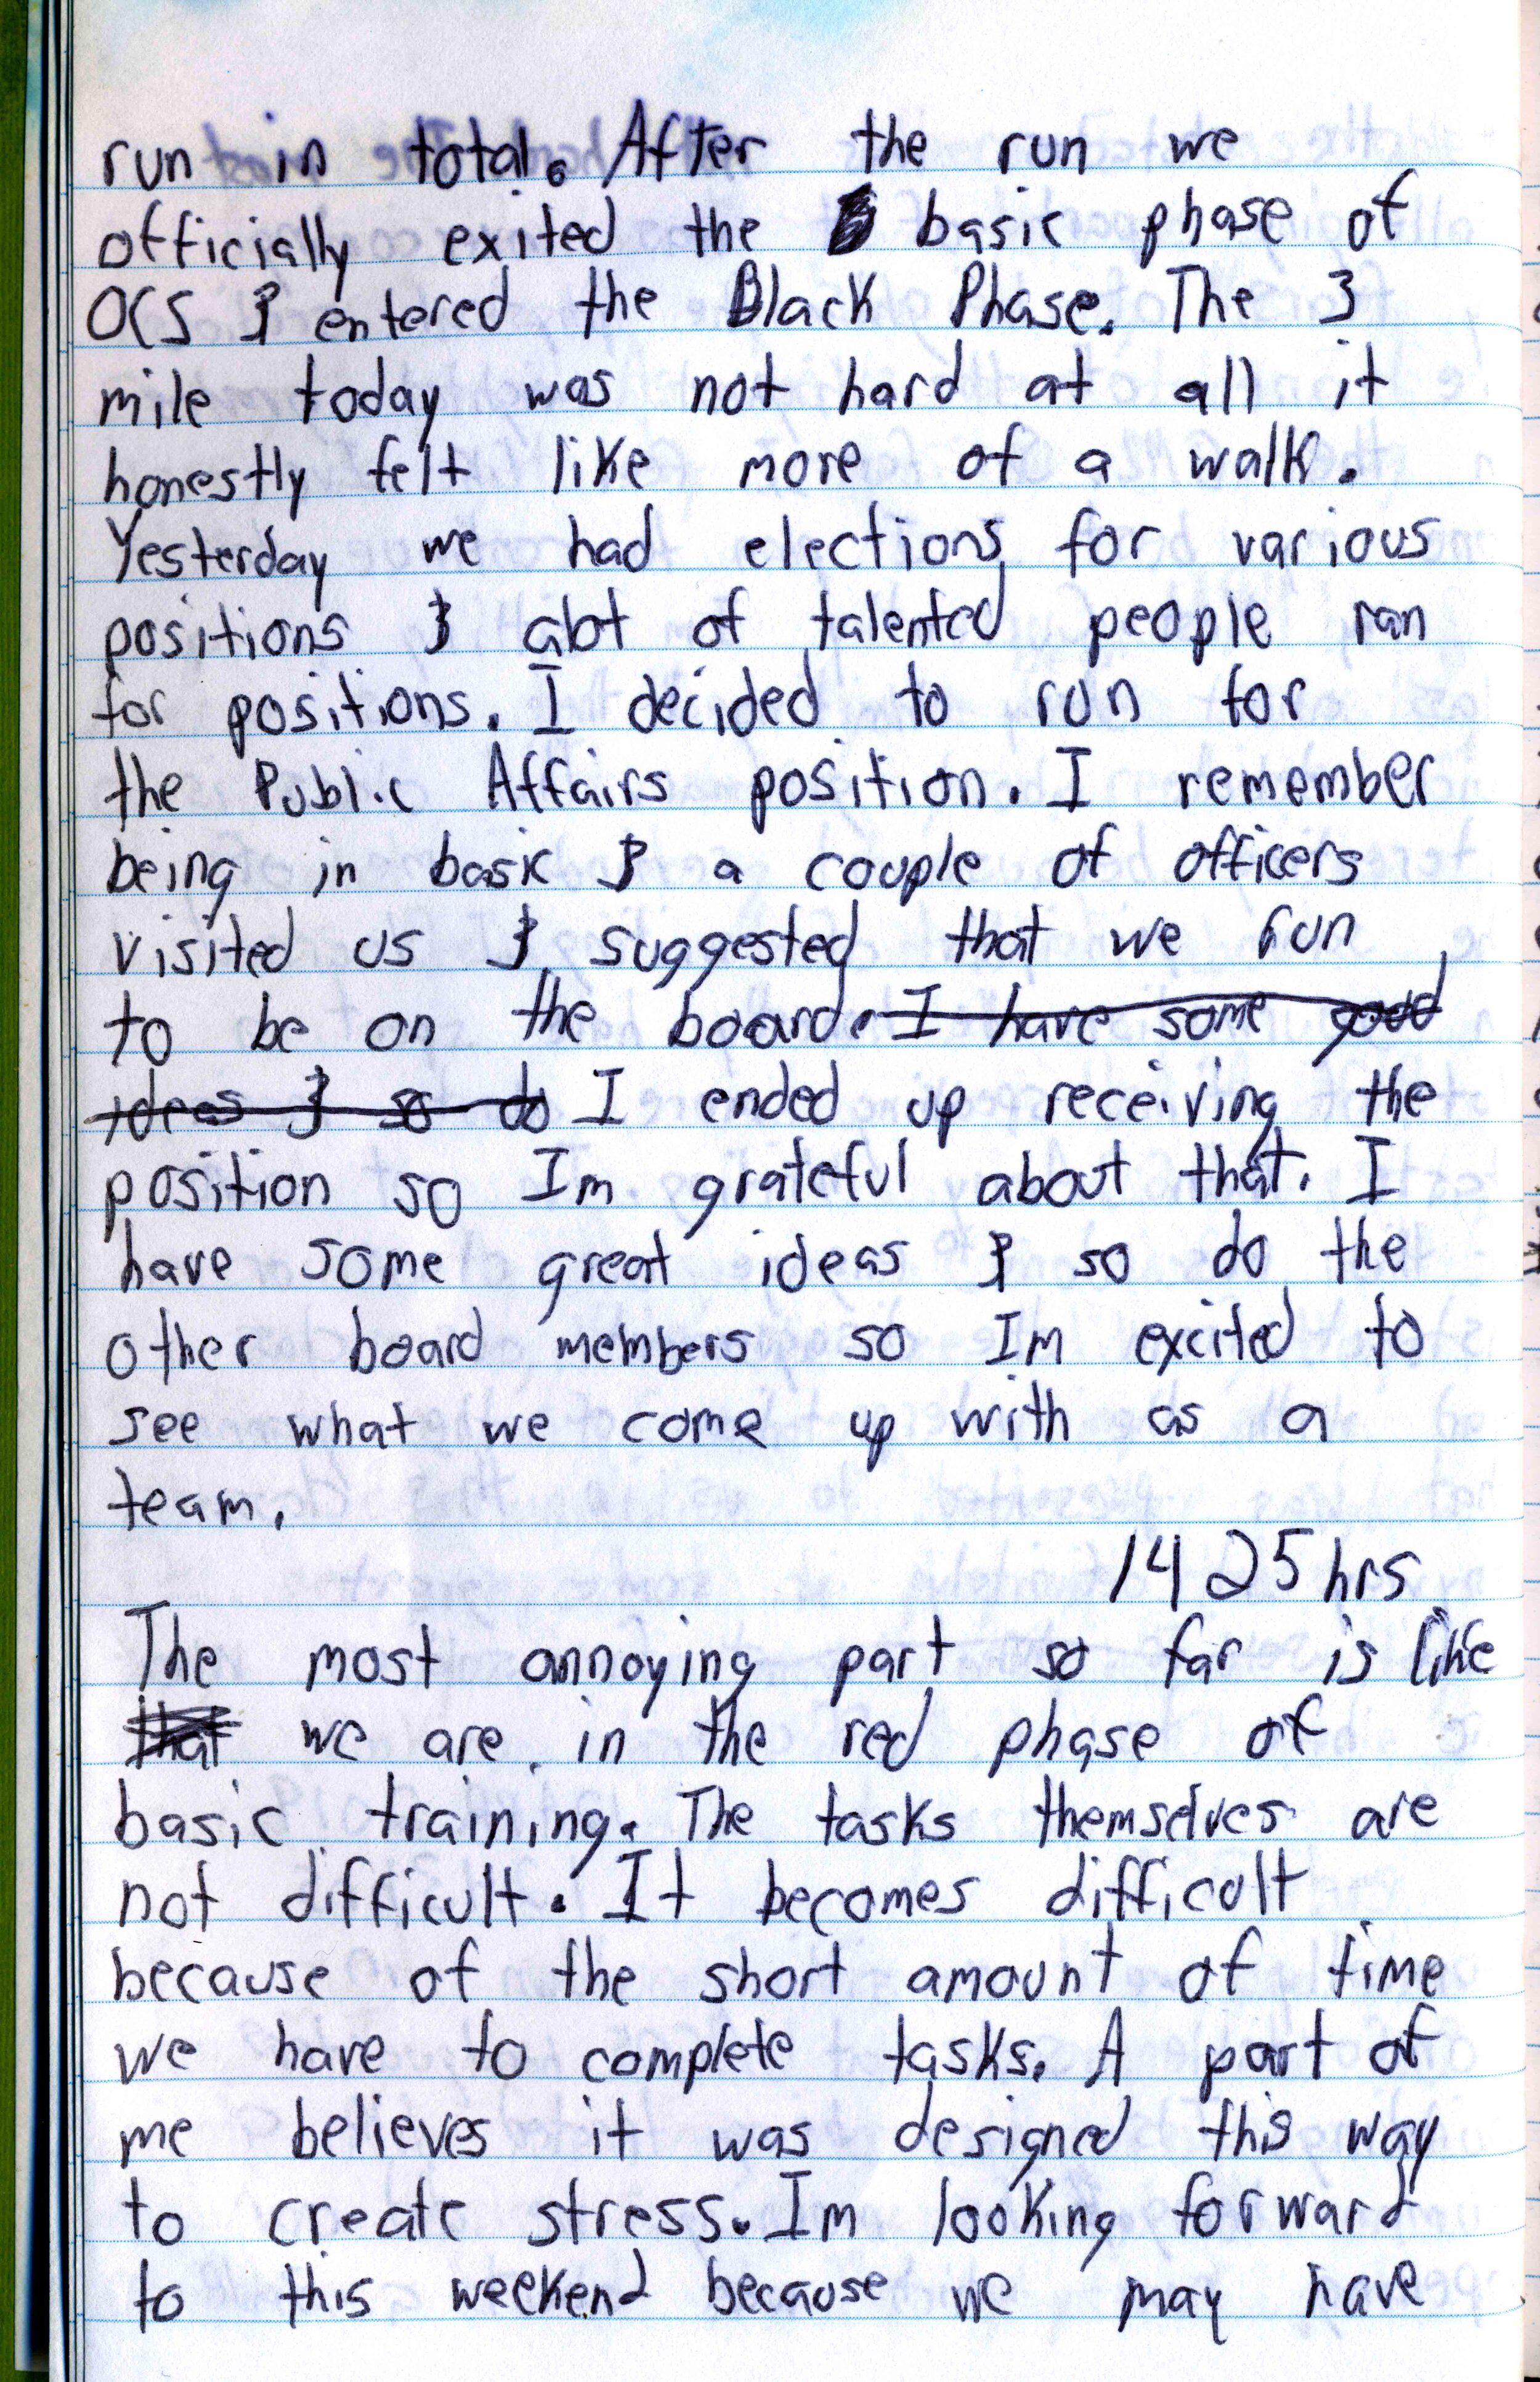 run in total. After the run we
officially exited the basic phase of
OCS & entered the Black Phase. The 3
mile today was not hard at all it
honestly felt like more of a walk.
Yesterday we had elections for various
positions & alot of talented people ran
for positions. I decided to run for
the Public Affairs position. I remember
being in basic & a couple of officers
visited us & suggested that we run
to be on the board. I have some good
ideas & so do I ended up receiving the
position so Im grateful about that. I
have some great ideas & so do the
other board members so Im excited to
see what we come up with as a
team.
1425hrs
The most annoying part so far is like
that we are in the red phase of
basic training. The tasks themselves are
not difficult. It becomes difficult
because of the short amount of time
we have to complete tasks. A part of
me believes it was designed this way
to create stress. Im looking forward
to this weekend because we may have